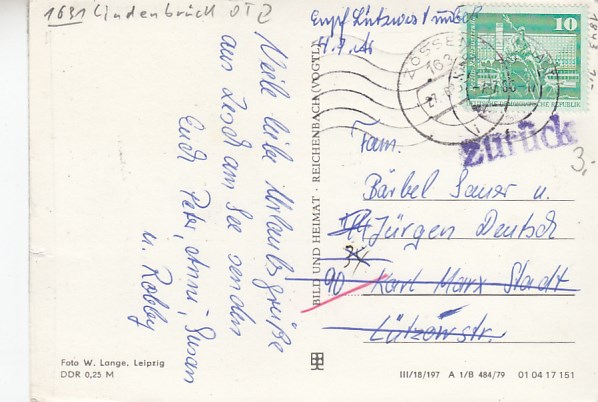 1631 Lindenbrück OT Z
Viele liebe Urlaubsgrüße
aus Zesch am See senden
Euch Peter, Anni, Susan
u. Robby
Foto W. Lange, Leipzig
DDR 0,25 M
BILD UND HEIMAT · REICHENBACH (VOGTL)
Empf Lützow
10
DEUTSCHE DEMOKRATISCHE REPUBLIK
ZOSSEN
Zurück
3.-
Fam.
Bärbel Sauer u.
Jürgen Deutsch
90 Karl Marx Stadt
Lützowstr.
III/18/197 A 1/B 484/79 01 04 17 151